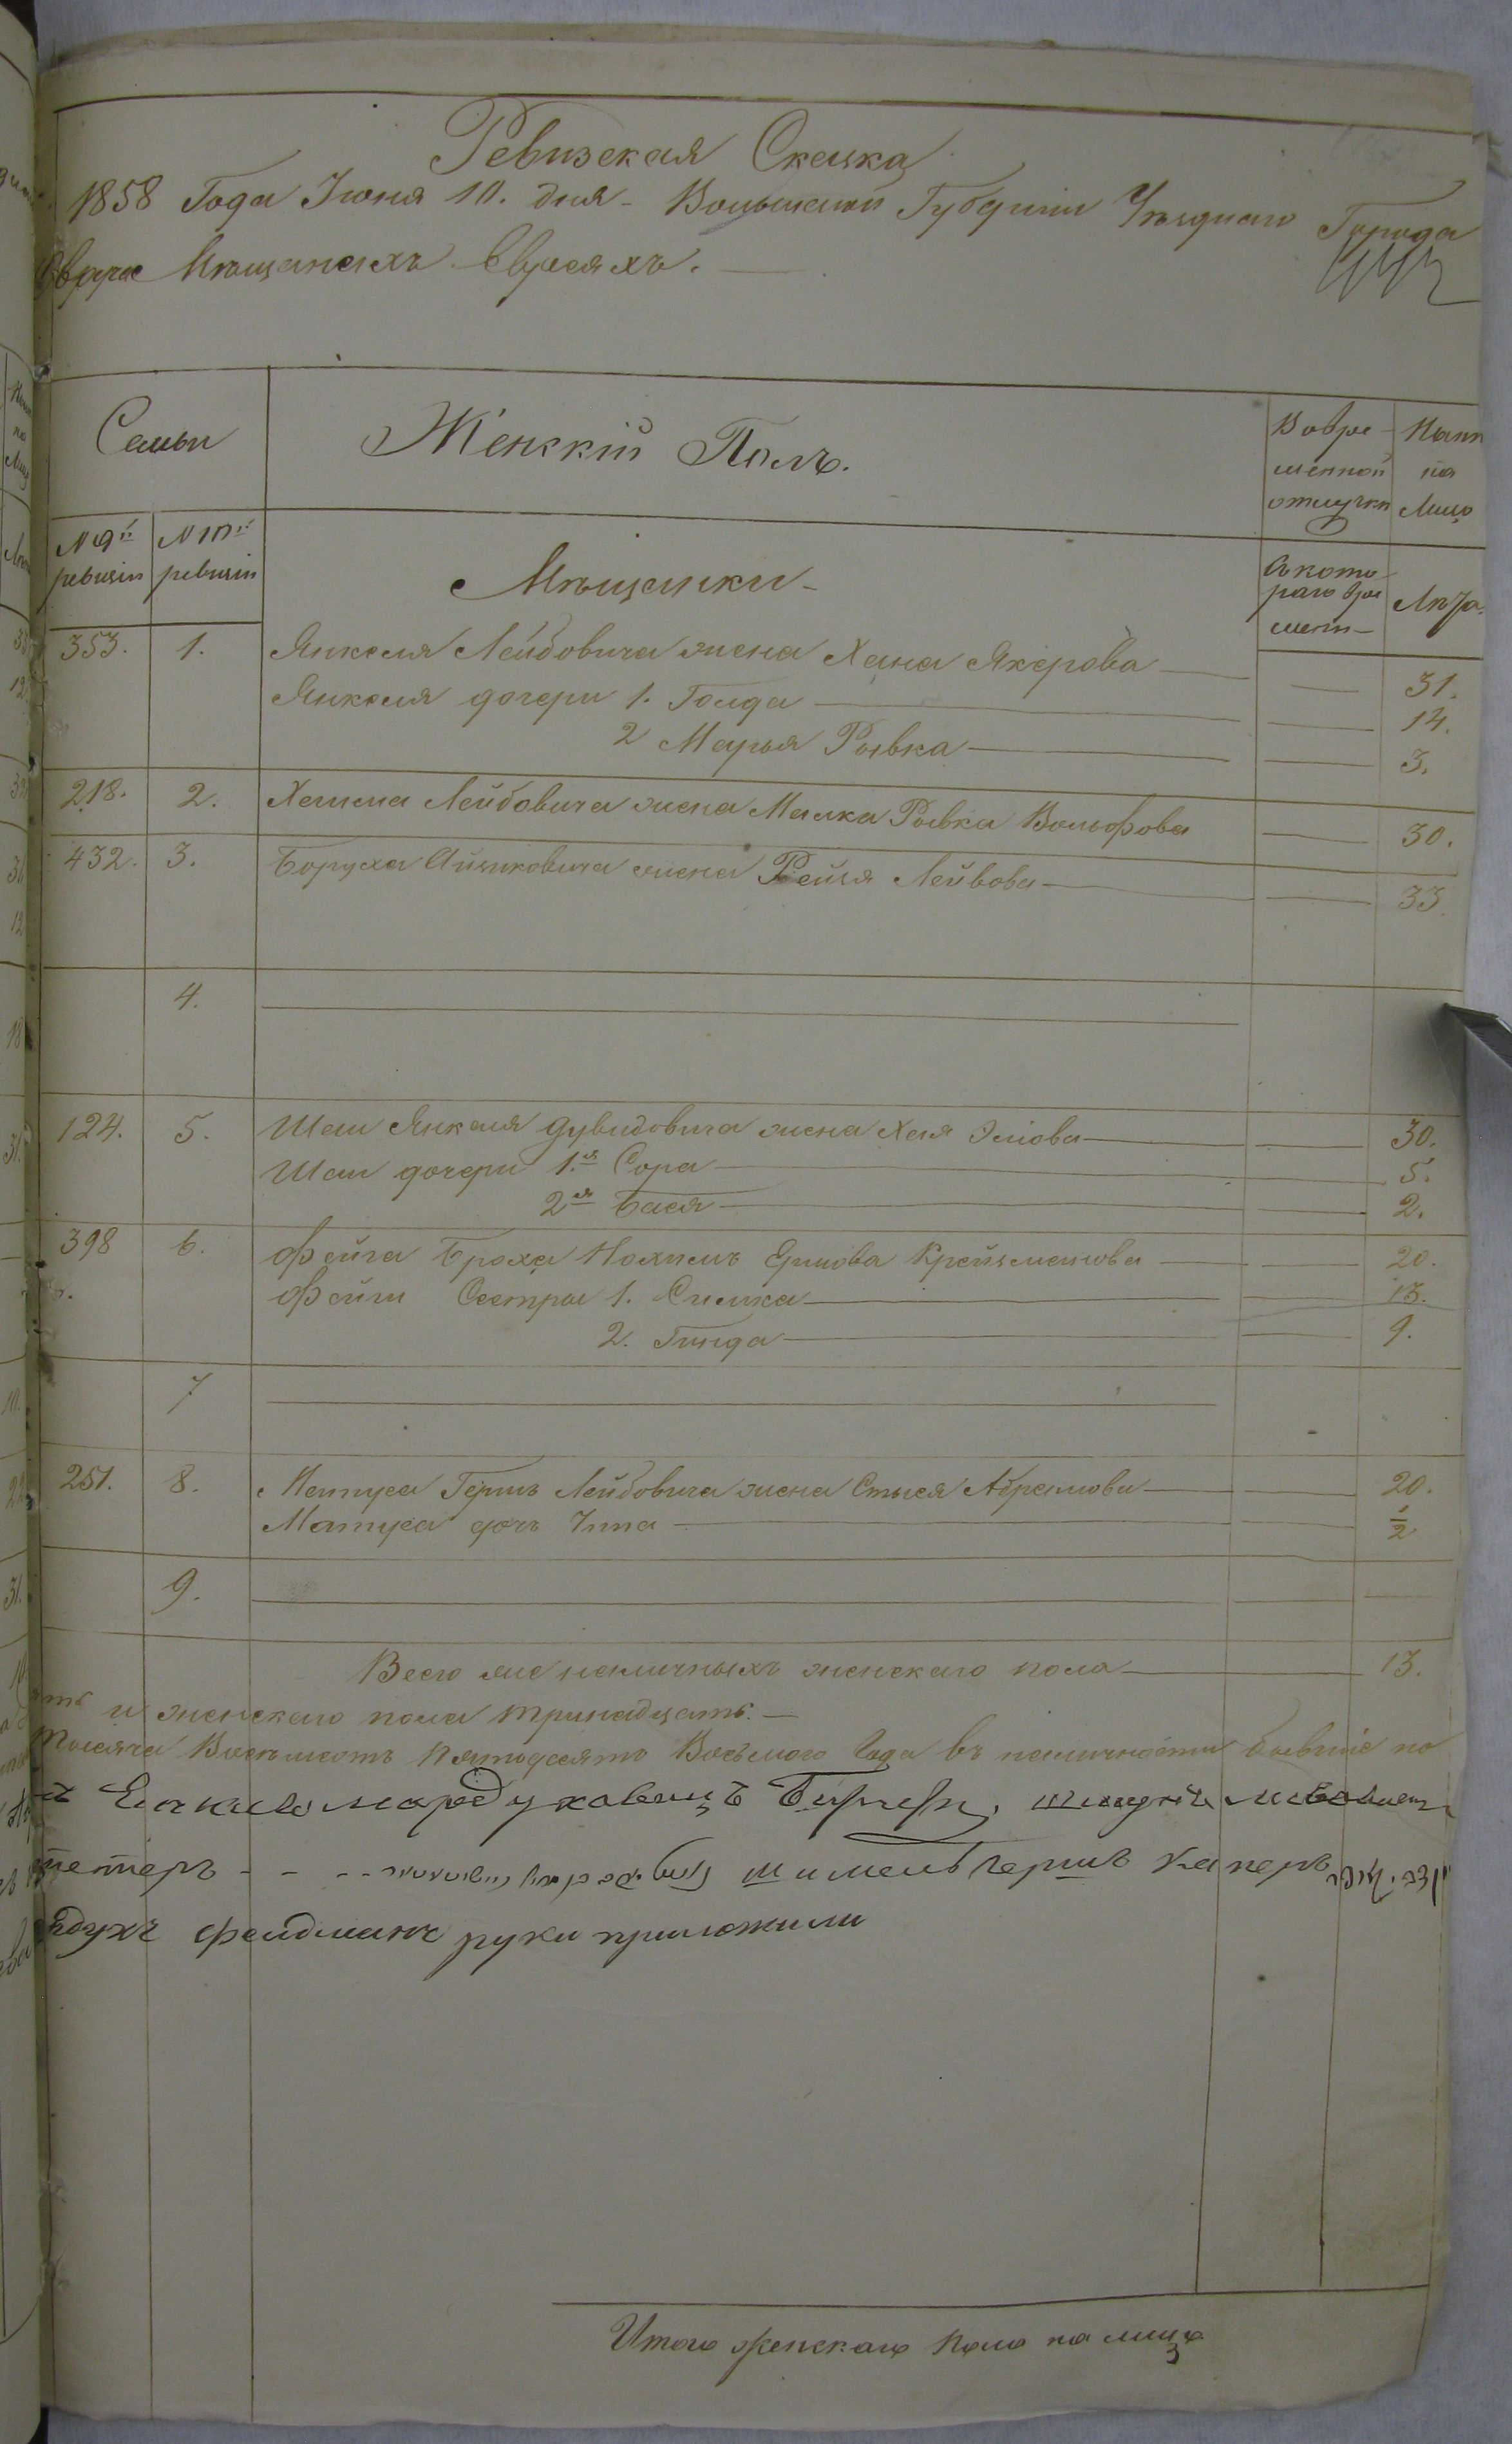 Ревизская Сказка
1858 Года Іюня 10. дня - Волынской Губерніи Уѣзднаго Города
Овруча Мѣщанахъ Евреяхъ.
Семьи
Женскій Полъ.
Во вре-
менной
отлучкѣ
Нынѣ
на
Лицо
N 9й
ревизіи
N 10й
ревизіи
Мѣщанки -
Съ кото-
раго вре
мени -
Лѣта.
353. 1. Янкеля Лейбовича жена Хана Якерова 31.
Янкеля дочери 1. Голда 14.
2 Марья Рывка 3.
218. 2. Хаима Лейбовича жена Малка Рывка Вольфова 30.
432. 3. Боруха Айзиковича жена Рейзя Лейбова 33
4.
124. 5. Шаи Янкеля Дувидовича жена Хая Эліова 30.
Шаи дочери 1.я Сора 5.
2я Бася 2.
398 6. Фейга Броха Ершова Крейзманова 20.
Фейги Сестры 1. Симка 13.
2. Гинда 9.
7
251. 8. Матуса Гершъ Лейбовича жена Стыся Абрамова 20.
Матуса дочь Чипа 1/2
9.
Всего же наличныхъ женскаго пола 13.
и женскаго пола тринадцать. -
тысяча Восемьсотъ Пятьдесятъ Восьмого Года въ наличности бывшіе по
Шимель Гершъ
Фельдманъ руки приложили
Итого женскаго пола на лицо